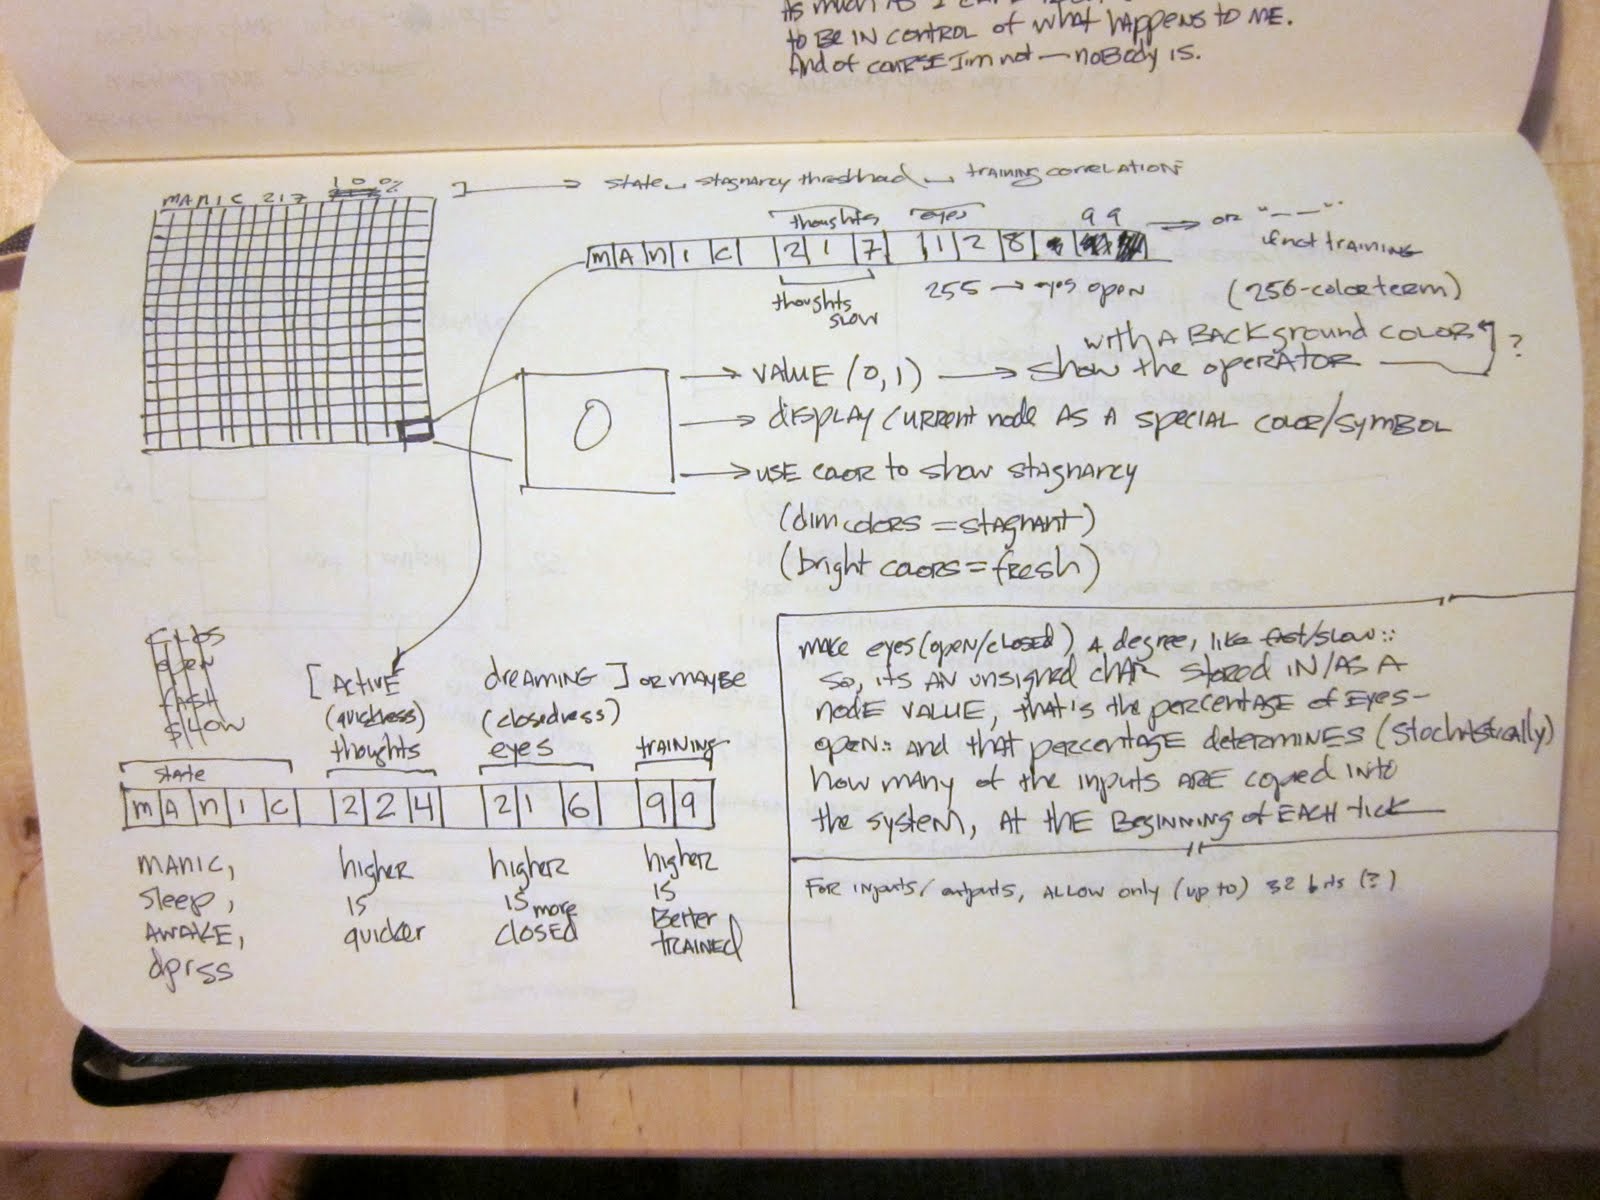 to BE IN CONTROL of what happens to ME.
And of course I'm not — noBody is.
MANIC 217 100%
state stagnancy threshhold training correlation
thoughts eyes 99
MANIC 217 128
or "— —" if not training
thoughts slow
255 → eyes open
(256-color term)
with a Background color ?
VALUE (0,1) → show the operator
0
→ display current node as a special color/symbol
→ use color to show stagnancy
(dim colors = stagnant)
(bright colors = fresh)
CLOS
OPEN
FAST
SLOW
[ACTIVE dreaming] or maybe
(quickness) (closedness)
state thoughts eyes training
MANIC 224 216 99
MANIC,
sleep,
AWAKE,
dprss
higher
is
quicker
higher
is more
closed
higher
is
Better
trained
make eyes (open/closed) a degree, like fast/slow::
so, its an unsigned char stored in/as a
node value, that's the percentage of eyes-
open:: and that percentage determines (stochastically)
how many of the inputs are copied into
the system, at the Beginning of each tick
For inputs/outputs, allow only (up to) 32 bits (?)